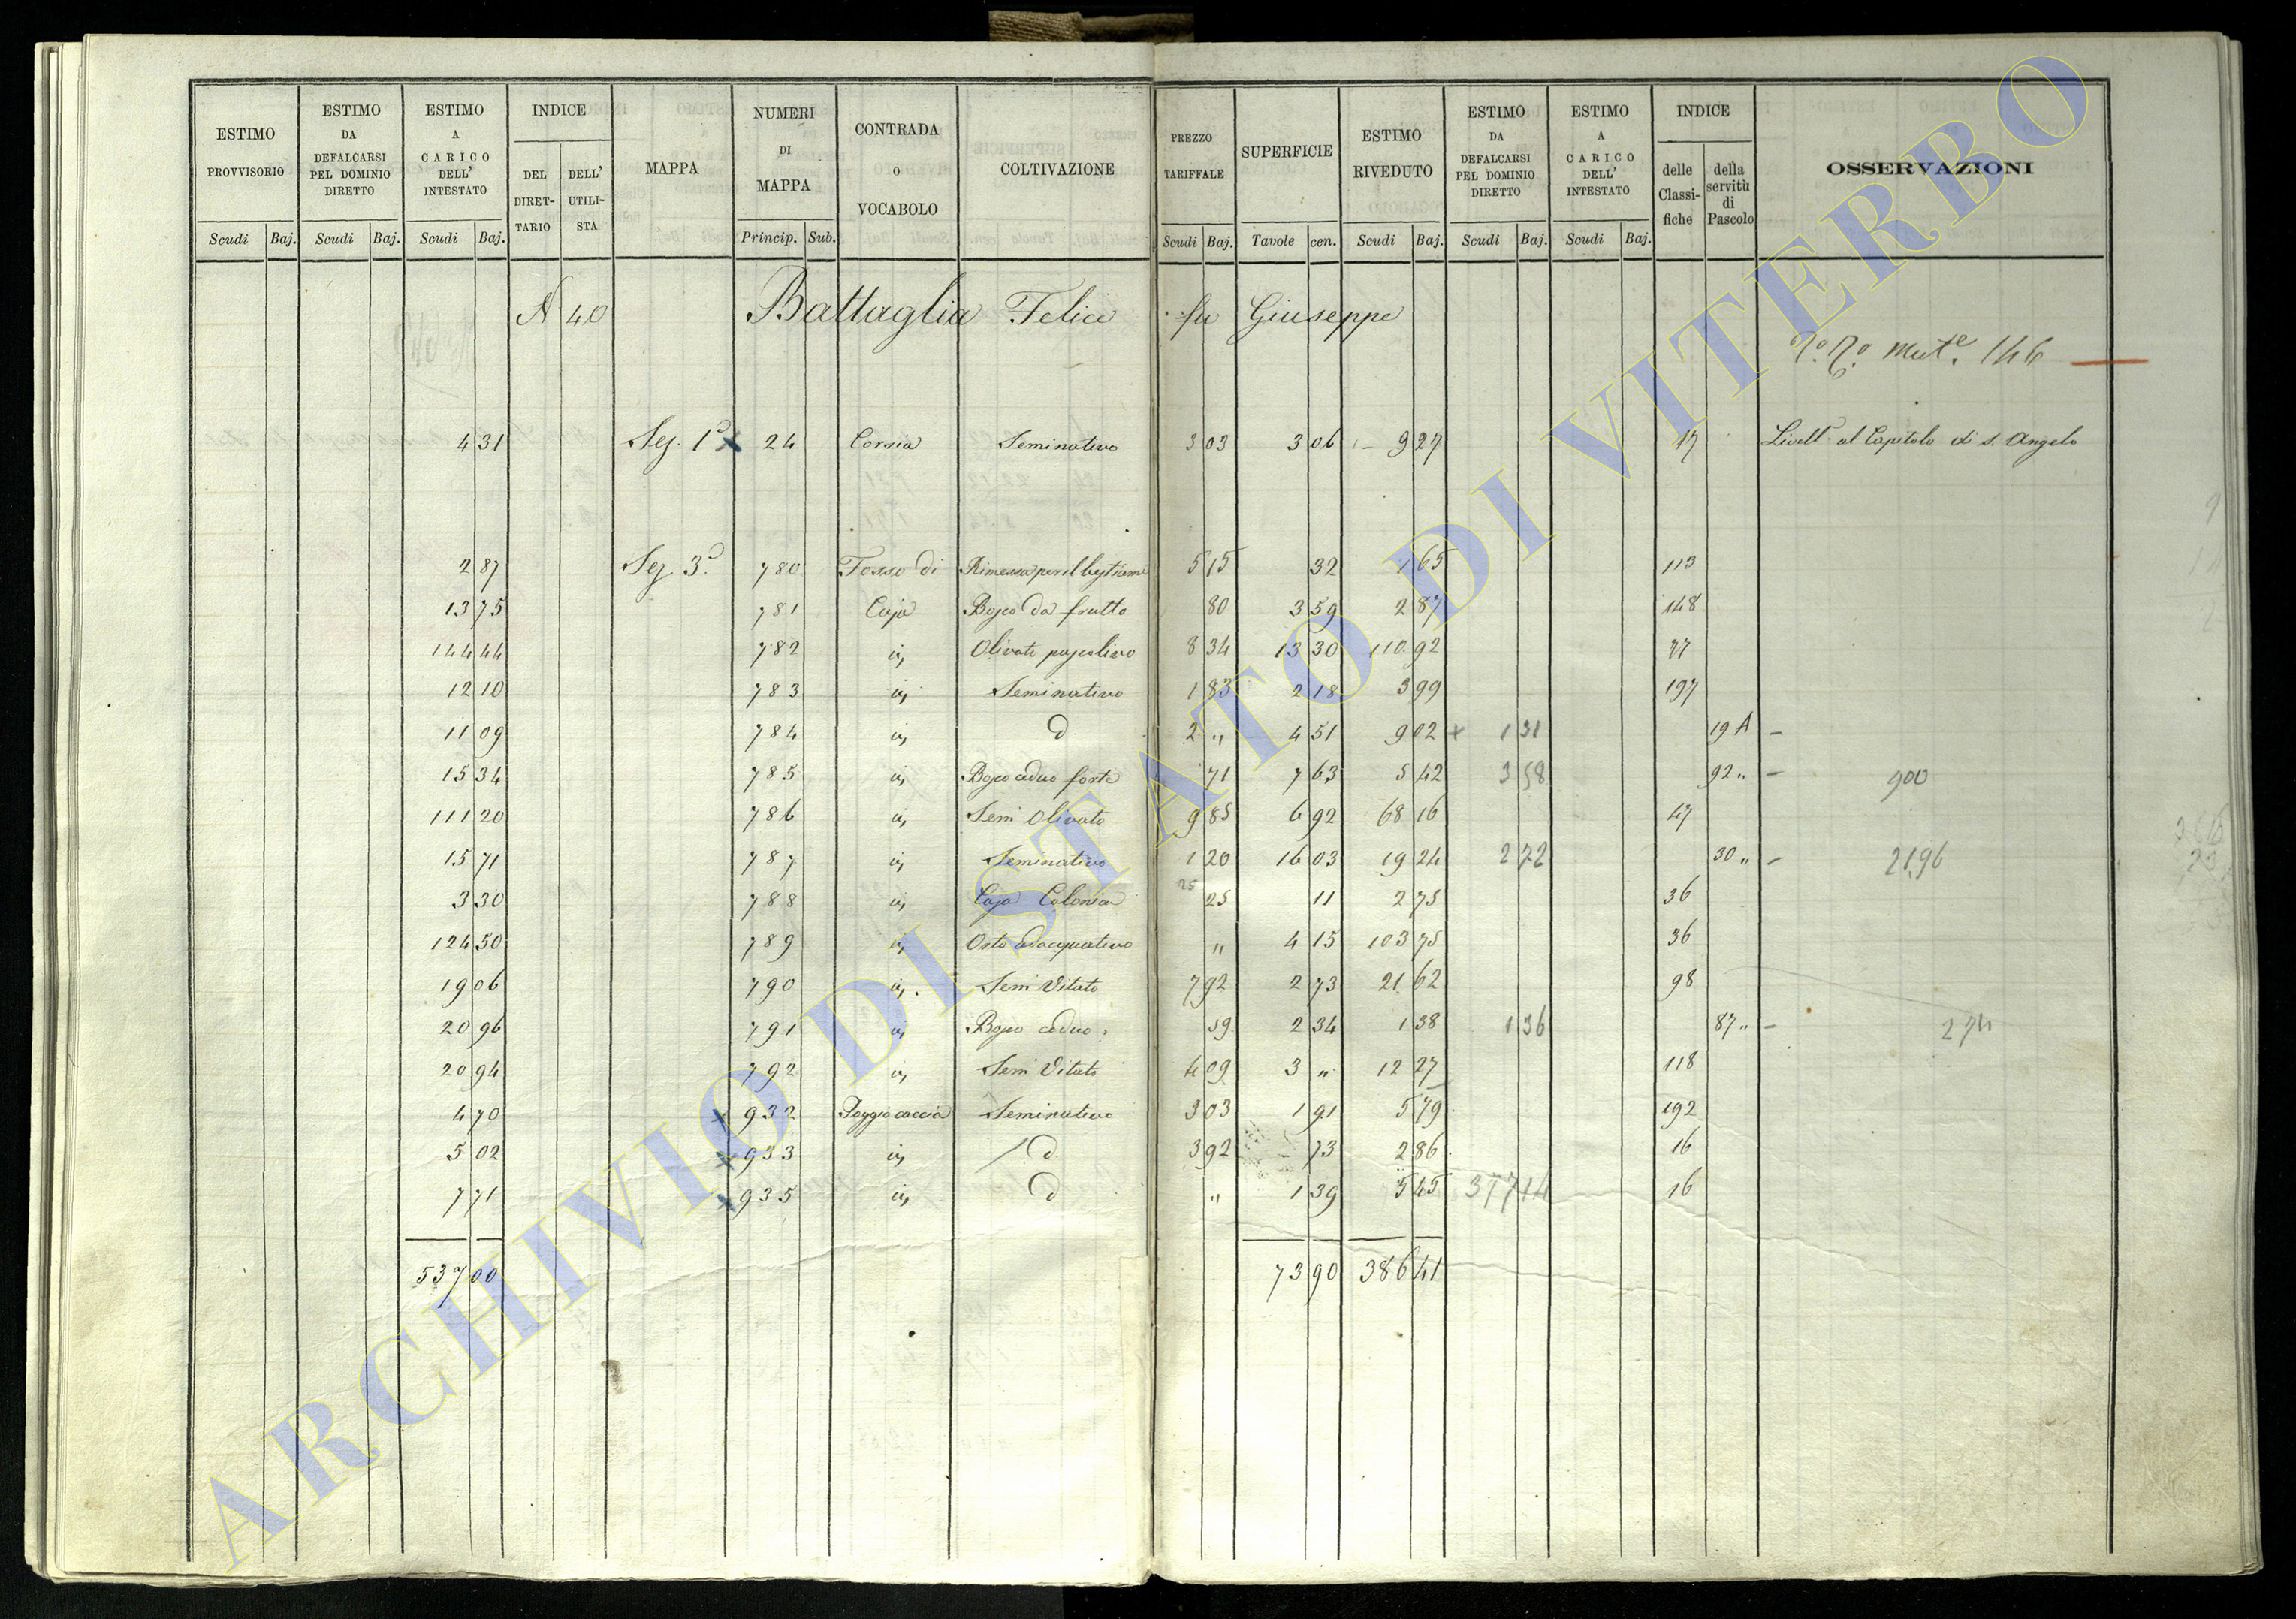 ESTIMO PROVVISORIO | ESTIMO DA DEFALCARSI PEL DOMINIO DIRETTO | ESTIMO A CARICO DELL' INTESTATO | INDICE DEL DIRETTARIO | DELL' UTILISTA | MAPPA | NUMERI DI MAPPA | CONTRADA O VOCABOLO | COLTIVAZIONE | PREZZO TARIFFALE | SUPERFICIE | ESTIMO RIVEDUTO | ESTIMO DA DEFALCARSI PEL DOMINIO DIRETTO | ESTIMO A CARICO DELL' INTESTATO | INDICE delle Classifiche | della servitù di Pascolo | OSSERVAZIONI
Scudi Baj. Scudi Baj. Scudi Baj. Princip. Sub. Scudi Baj. Tavole cen. Scudi Baj. Scudi Baj. Scudi Baj.
N 40 Battaglia Felice fu Giuseppe
mut.e 146
4 31 Sez. 1a 24 Corsia Seminativo 3 03 3 06 9 27 17 Livell. al Capitolo di S. Angelo
2 87 Sez. 3a 780 Fosso di Rimessa per il bestiame 5 15 32 1 65 113
13 75 781 Caja Bosco da frutto 80 3 59 2 87 148
144 44 782 in Olivato pascolivo 8 34 13 30 110 92 77
12 10 783 in Seminativo 1 83 2 18 3 99 197
11 09 784 in d 2 " 4 51 9 02 + 1 31 19 A -
15 34 785 in Bosco ceduo forte 71 7 63 5 42 3 58 92 " - 900
111 20 786 in Sem Olivato 9 85 6 92 68 16 47
15 71 787 in Seminativo 1 20 16 03 19 24 2 72 30 " - 2196
3 30 788 in Casa Colonica 25 25 11 2 75 36
124 50 789 in Orto adacquativo " 4 15 103 75 36
19 06 790 in Sem Vitato 7 92 2 73 21 62 98
20 96 791 in Bosco ceduo 59 2 34 1 38 1 36 87 " - 274
20 94 792 in Sem Vitato 4 09 3 " 12 27 118
4 70 932 Poggio caccia Seminativo 3 03 1 91 5 79 192
5 02 933 in d 3 92 73 2 86 16
7 71 935 in d " 1 39 5 45 377 14 16
537 00 73 90 386 41
ARCHIVIO DI STATO DI VITERBO